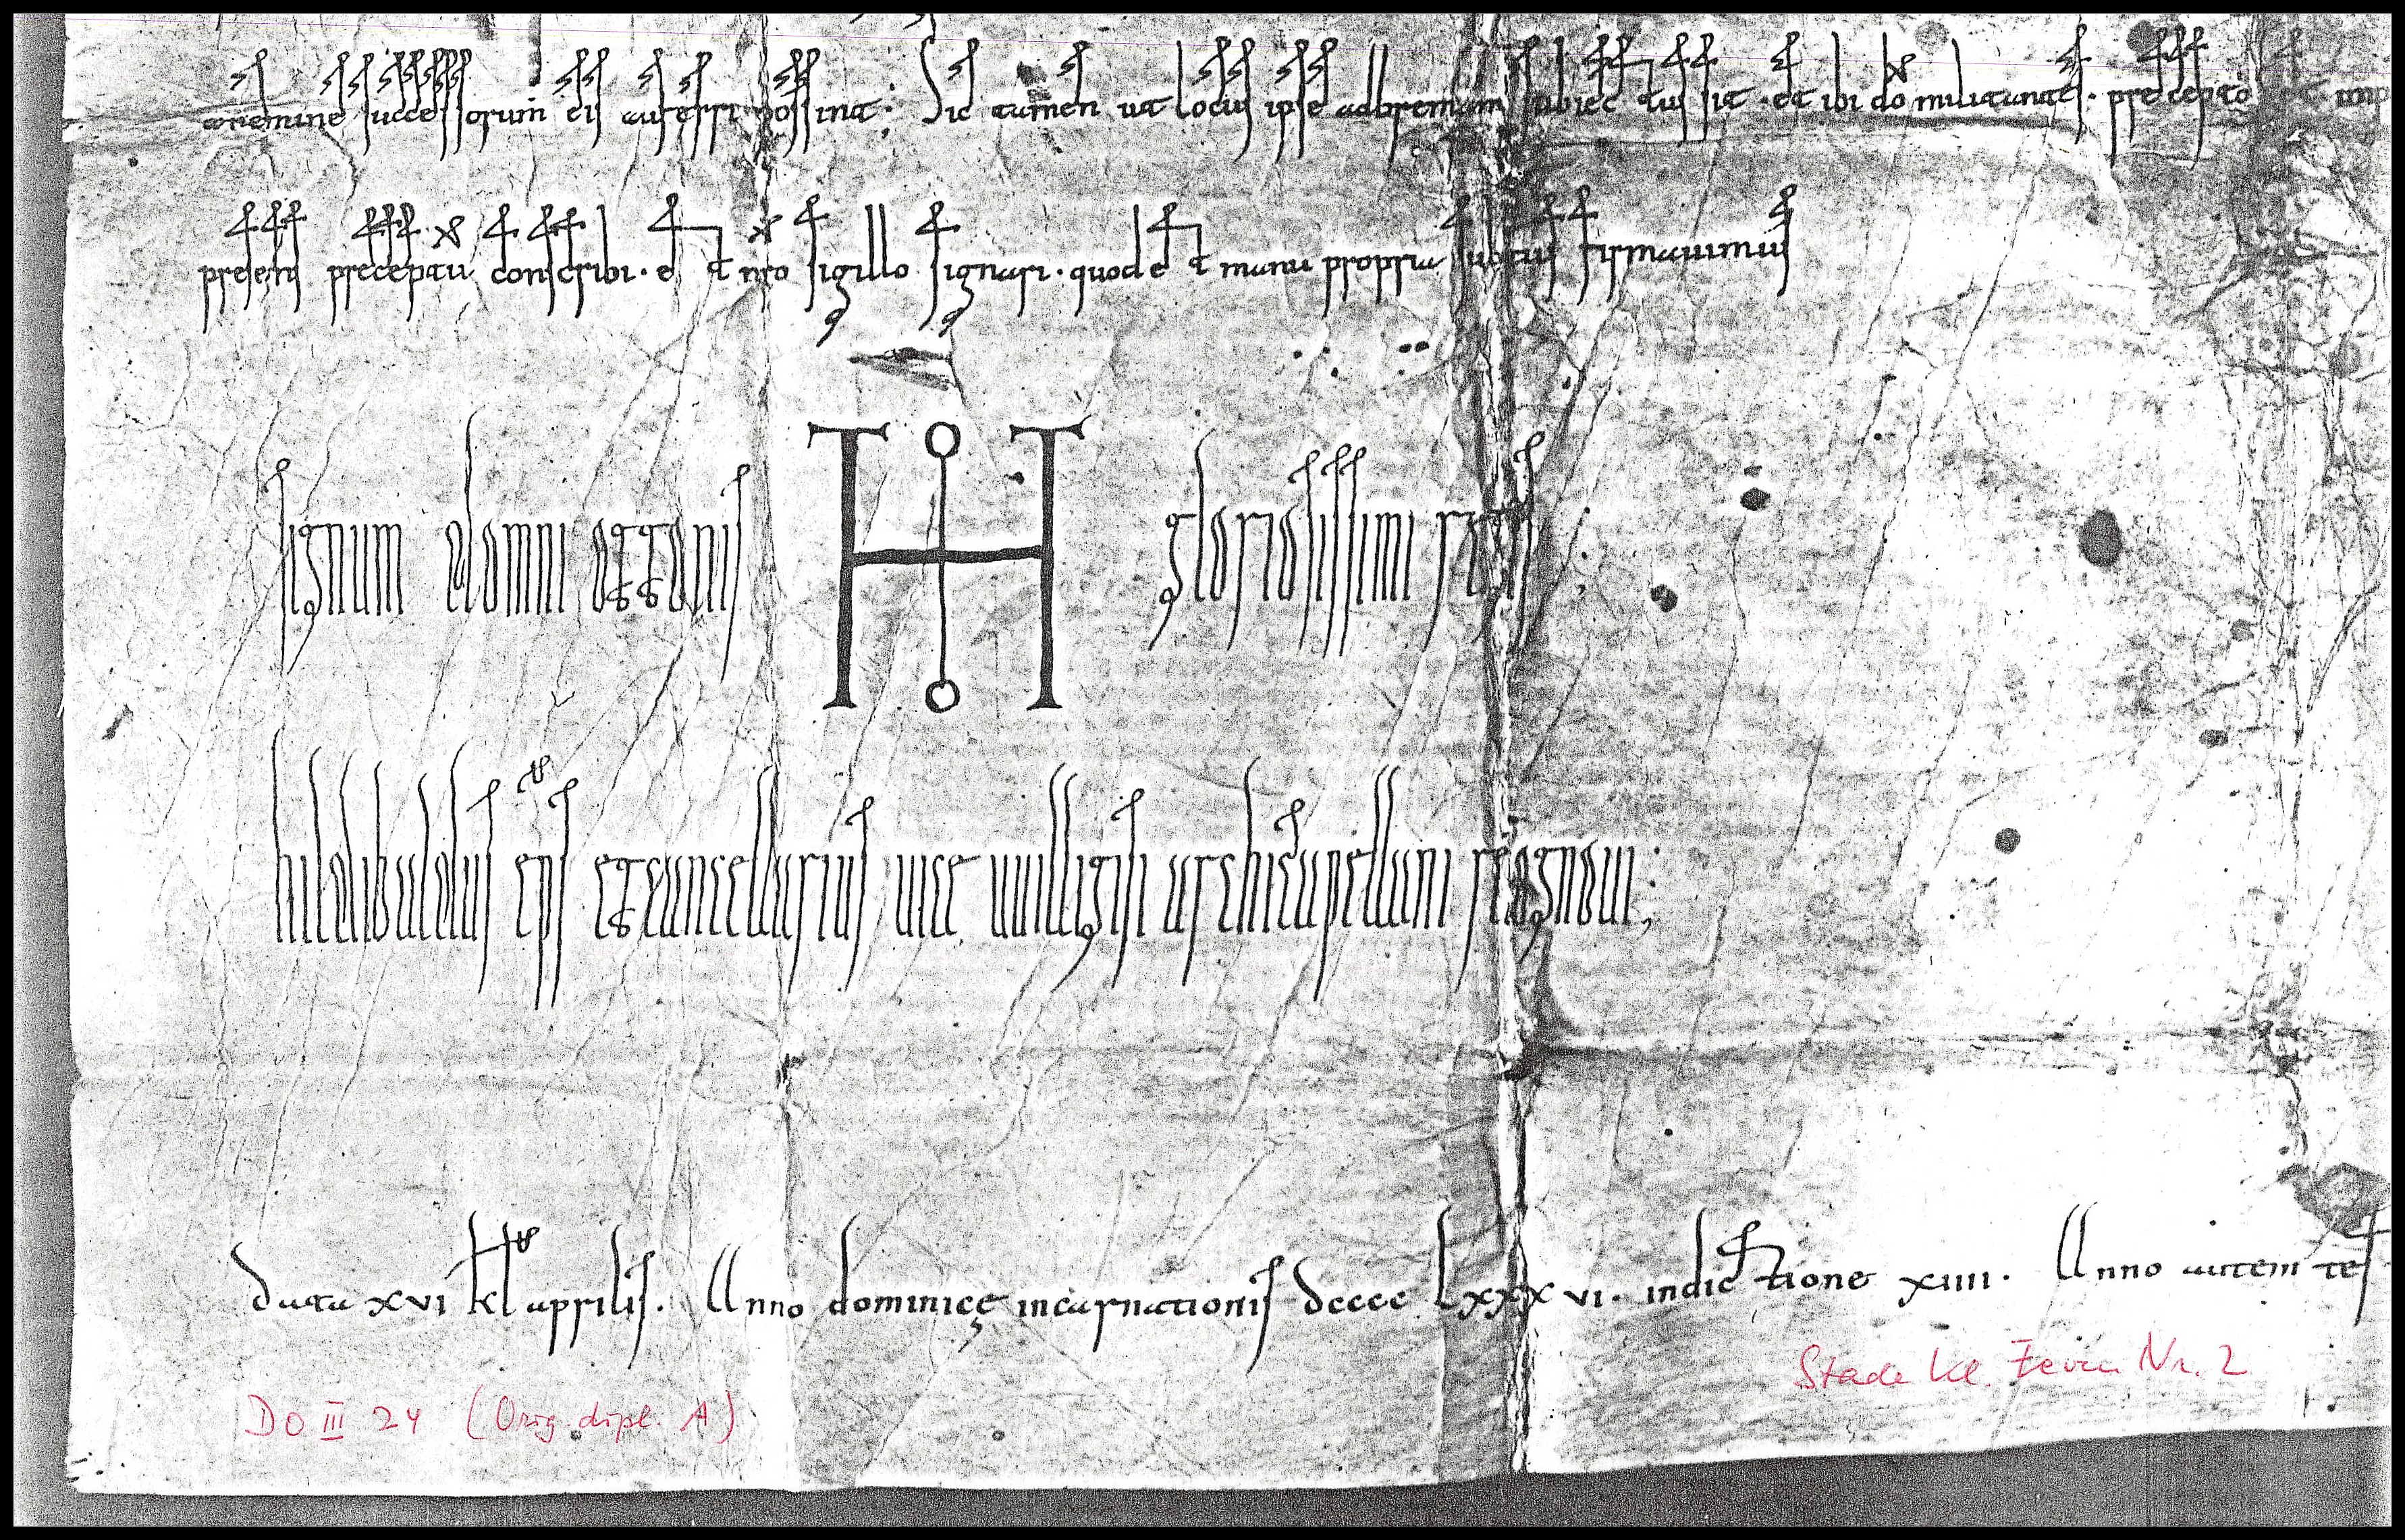 a nemine successorum eius auferri possint; Sic tamen ut locus ipse ad bremam subiectus sit · et ibi do militantes · precepto
presens preceptu conscribi · et nro sigillo signari · quod et manu propria subtus firmavimus
signum domni ottonis gloriosissimi regis ;
hildibuldus eps et cancellarius vice uuilligisi archicapellani recognovi ;
Data xvi kl aprilis. Anno dominicę incarnationis dcccc lxxxvi · indictione xiiii · Anno autem
DO III 24 (Orig. dipl. A)
Stade Kl. Zeven Nr. 2